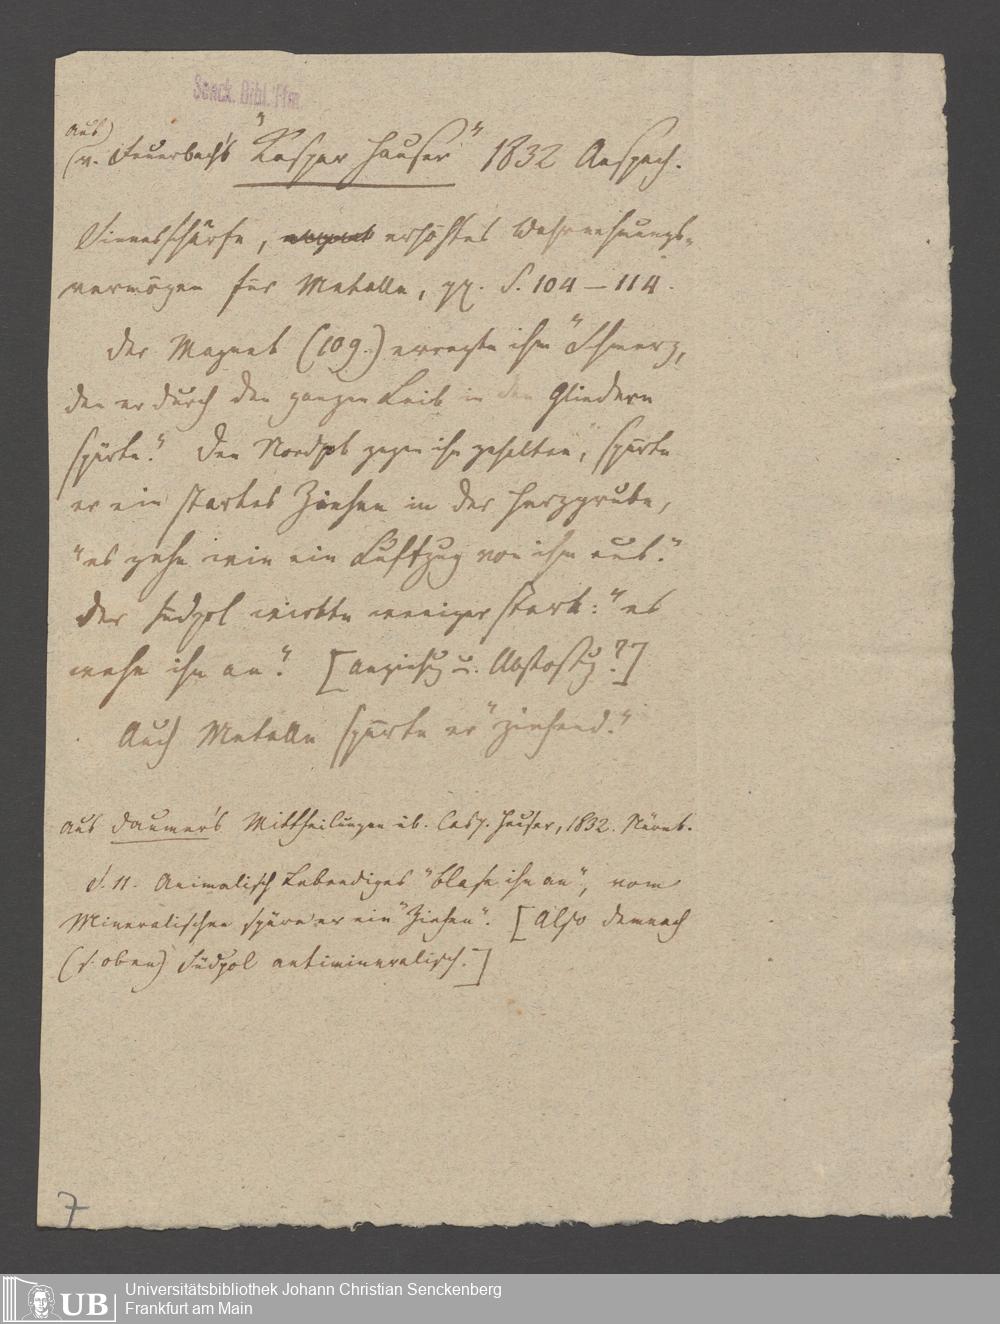 Senck. Bibl. Ffm.
aus)
(v. Feuerbach's "Kaspar Hauser" 1832 Anspach.
Sinnesschärfe, erhöhtes Wahrnehmungs-
vermögen für Metalle, pp. S. 104 – 114.
Der Magnet (109.) erregte ihm "Schmerz,
den er durch den ganzen Leib in den Gliedern
spürte." Den Nordpol gegen ihn gehalten, spürte
er ein starkes Ziehen in der Herzgrube,
"es gehe wie ein Luftzug von ihm aus."
Der Südpol wirkte weniger stark: "es
wehe ihn an." [Anziehg u. Abstoßg?]
Auch Metalle spürte er "ziehend."
aus Daumer's Mittheilungen üb. Casp. Hauser, 1832. Nürnb.
S. 11. Animalisch Lebendiges "blase ihn an", vom
Mineralischen spüre er ein "Ziehen". [Also demnach
(s. oben) Südpol antimineralisch.]
7
UB
Universitätsbibliothek Johann Christian Senckenberg
Frankfurt am Main